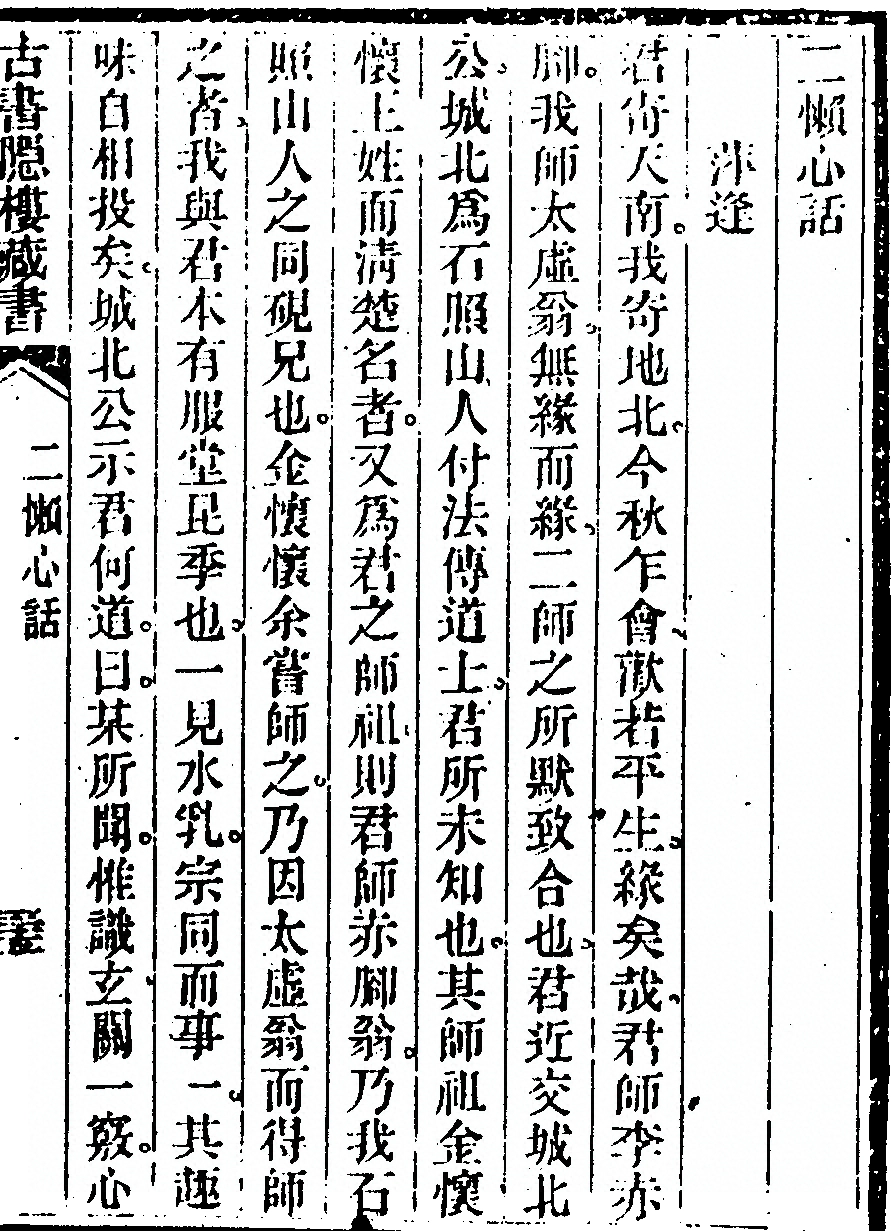 二懶心話
萍逢
君寄天南。我寄地北。今秋乍會。歡若平生。緣矣哉。君師李赤
腳。我師太虛翁。無緣而緣。二師之所默致合也。君近交城北
公。城北爲石照山人付法傳道士。君所未知也。其師祖金懷
懷王姓而淸楚名者。又爲君之師祖。則君師赤腳翁。乃我石
照山人之同硯兄也。金懷懷余嘗師之。乃因太虛翁而得師
之者。我與君本有服堂昆季也。一見水乳。宗同而事一。其趣
味自相投矣。城北公示君何道。曰。某所聞。惟識玄關一竅。心
二懶心話
古書隱樓藏書